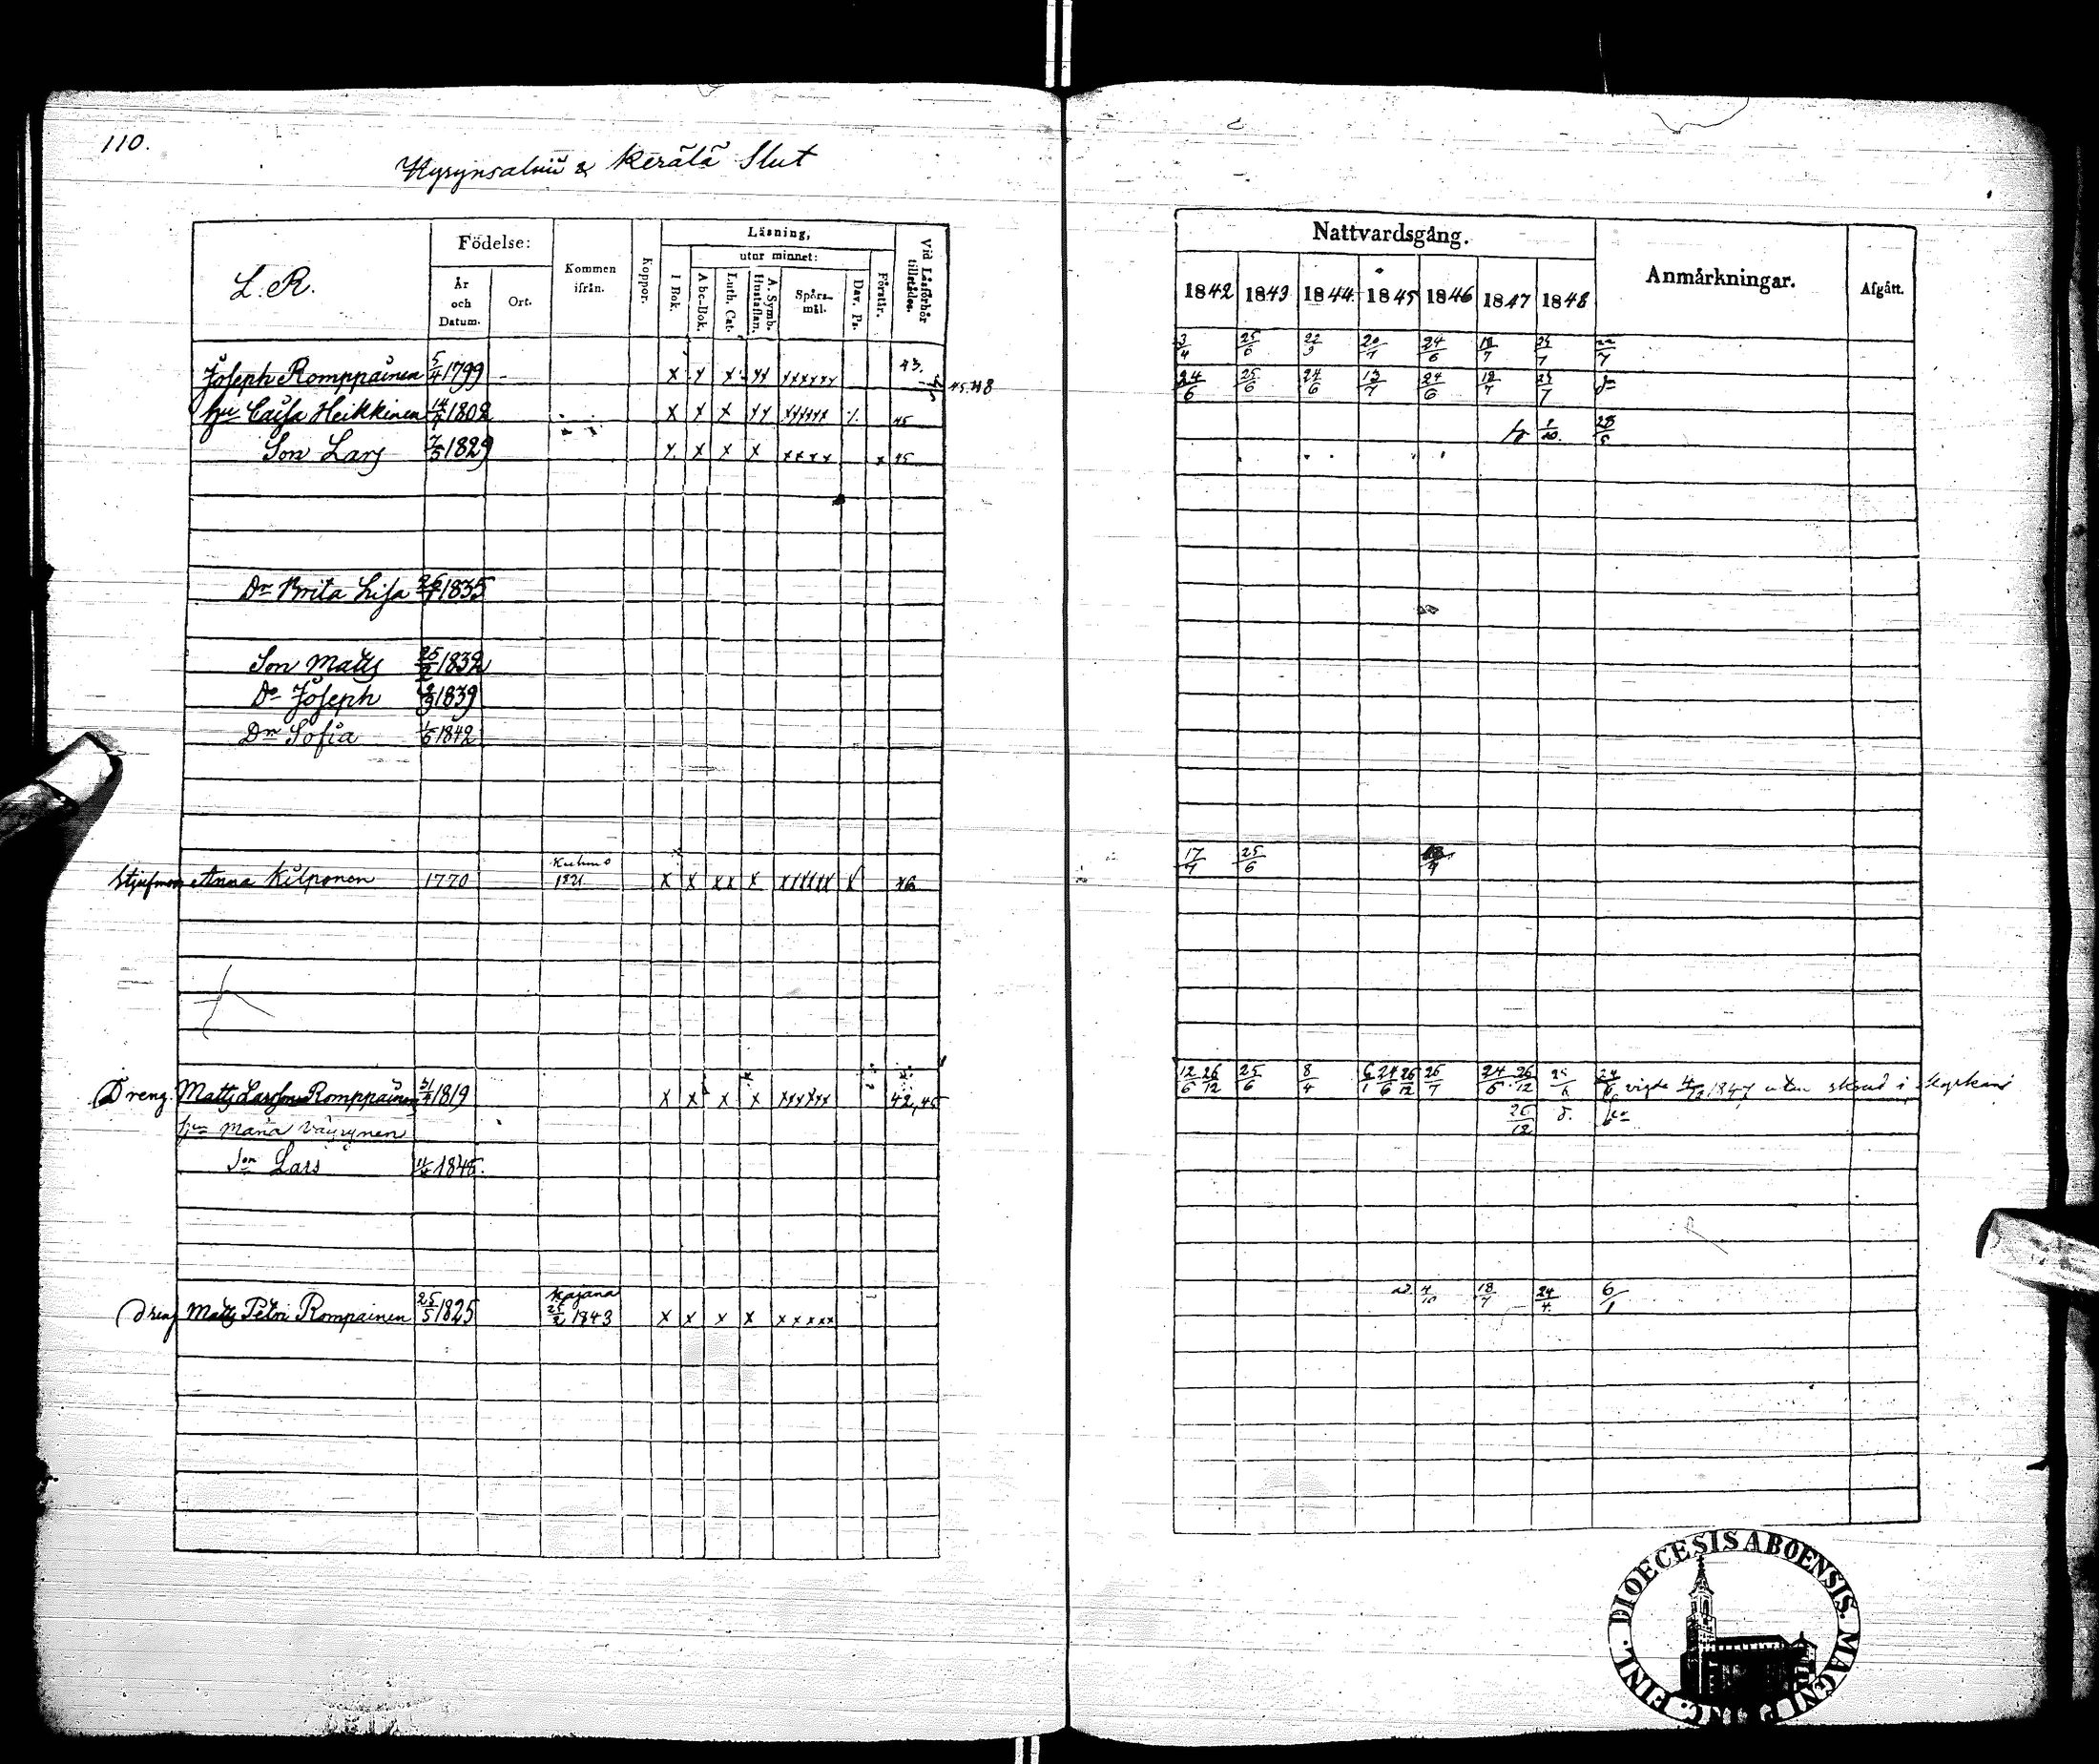 110.
Hyrynsalmi & Kerälä Slut
L. R.
Födelse:
År och Datum.
Ort.
Kommen ifrån.
Koppor.
Läsning,
utur minnet:
I Bok.
Abc-Bok.
Luth. Cat.
A. Symb. Hustaflan.
Spörs-mål.
Dav. Ps.
Förstår.
Vid Läsförhör tillstädes.
Joseph Romppainen 5/4 1799 - x y x yy xxxxxx 43. 45.48
hu Caisa Heikkinen 14/9 1802 x x x yy xxxxxx 45
Son Lars 7/5 1829 x x x x x x x x x 45
Dr Brita Lisa 1835
Son Matts 25/2 1832
Do Joseph 1839
Dr Sofia 1/5 1842
Stjufmor Anna Kilponen 1770 Kuhmo 1821 x x xx x xxxxxx x 46
Dreng Matts Larsson Romppainen 31/4 1819 x x x x xxxxxx 42,45
hu Maria Väyrynen
Son Lars 1848.
Dreng Matts Petri Rompainen 25/5 1825 Kajana 25/2 1843 x x x x xxxxx
Nattvardsgång.
Anmärkningar.
Afgått.
1842 1843 1844 1845 1846 1847 1848
3/4 25/6 22/9 20/7 24/6 18/7 23/7 22/7
24/6 25/6 24/6 13/7 24/6 18/7 23/7
17/7 25/6
12/6 26/12 25/6 8/4 6/1 24/6 26/12 26/7 24/6 26/12 24/6 vigde 1847 utan skrud i kyrkan
26/12
4/10 18/7 24/4 6/1
FINL. DIOECESIS ABOENSIS. MAGNI PRINC.